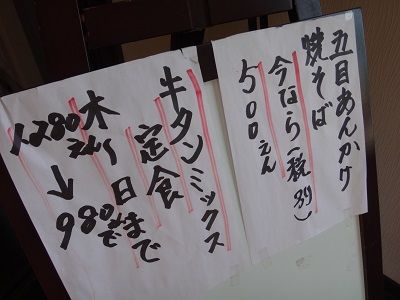 五目あんかけ
焼そば
今なら(税別)
500えん
牛タンミックス
定食
木日まで
1,280えん
↓
980えんで